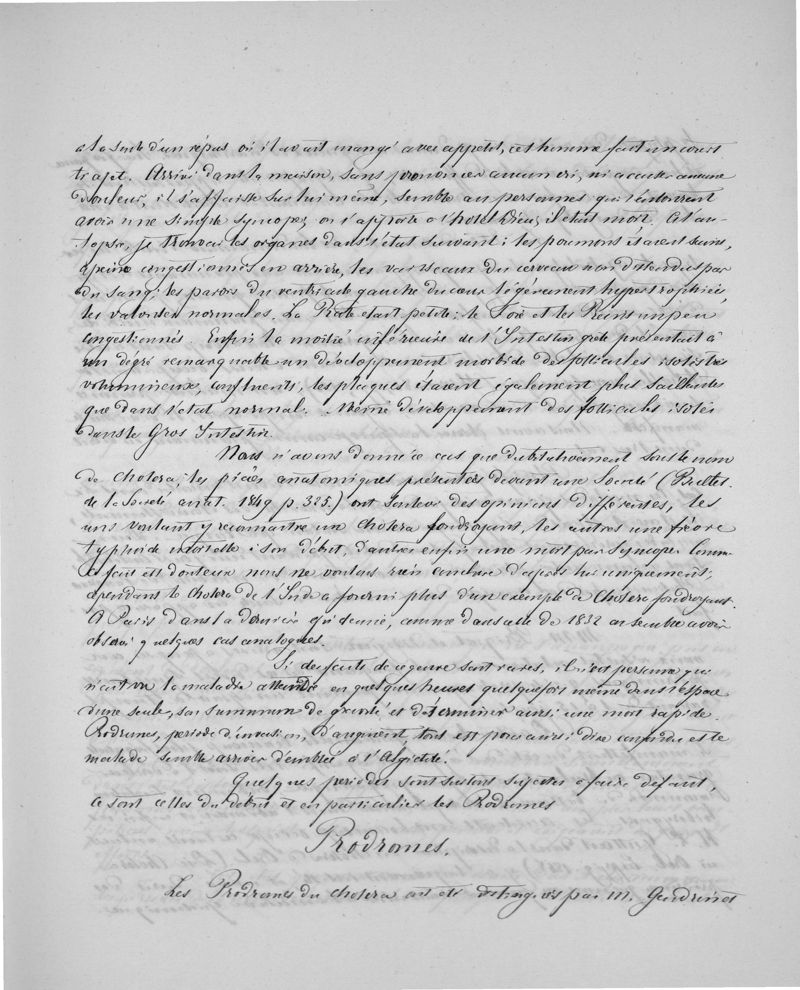 a la suite d'un répas où il avait mangé avec appétit, cet homme fait un court
trajet. Arrivé dans la maison, sans prononcer aucun cri, ni accuser aucune
douleur, il s'affaisse sur lui même, semble au personnes qui l'entourent
avoir une simple syncope; on l'apporte a l'hotel Dieu; il était mort. A l'au-
topsie, je trouvai les organes dans l'état suivant: les poumons étaient sains,
à peine congestionnés en arrière, les vaisseaux du cerveau non distendus par
du sang; les parois du ventricule gauche du cœur légérement hypertrophiées,
les valvules normales. La Rate était petite; le Foie et les Reins un peu
congestionnés. Enfin la moitié inférieure de l'Intestin grêle présentait à
un dégré remarquable un développement morbide des follicules isolés très
volumineux, confluents, les plaques étaient également plus saillantes
que dans l'état normal. Même développement des follicules isolés
dans le Gros Intestin.
Nous n'avons donné ce cas que dubitativement sous le nom
de cholera; les pièces anatomiques présentées devant une Société (Bullet.
de la Société anat. 1849 p. 325.) ont soulevé des opinions différentes, les
uns voulant y reconnaitre un cholera foudroyant, les autres une fièvre
typhoide mortelle à son début, d'autres enfin une mort par syncope. Comme
ce fait est douteux nous ne voulons rien conclure d'après lui uniquement;
cependant le cholera de l'Inde a fourni plus d'un exemple de Cholera foudroyant.
A Paris dans la dernière épidemie, comme dans celle de 1832 on semble avoir
observé quelques cas analogues.
Si des faits de ce genre sont rares, il n'est personne qui
n'ait vu la maladie atteindre en quelques heures quelquefois même dans l'espace
d'une seule, son summum de gravité et determiner ainsi une mort rapide.
Prodromes, période d'invasion, d'augment tout est pour ainsi dire confondu et le
malade semble arriver d'emblée à l'Algidité.
Quelques periodes sont surtout sujettes a faire défaut,
ce sont celles du début et en particulier les Prodromes
Prodromes.
Les Prodromes du cholera ont été distingués par M. Gendrin et